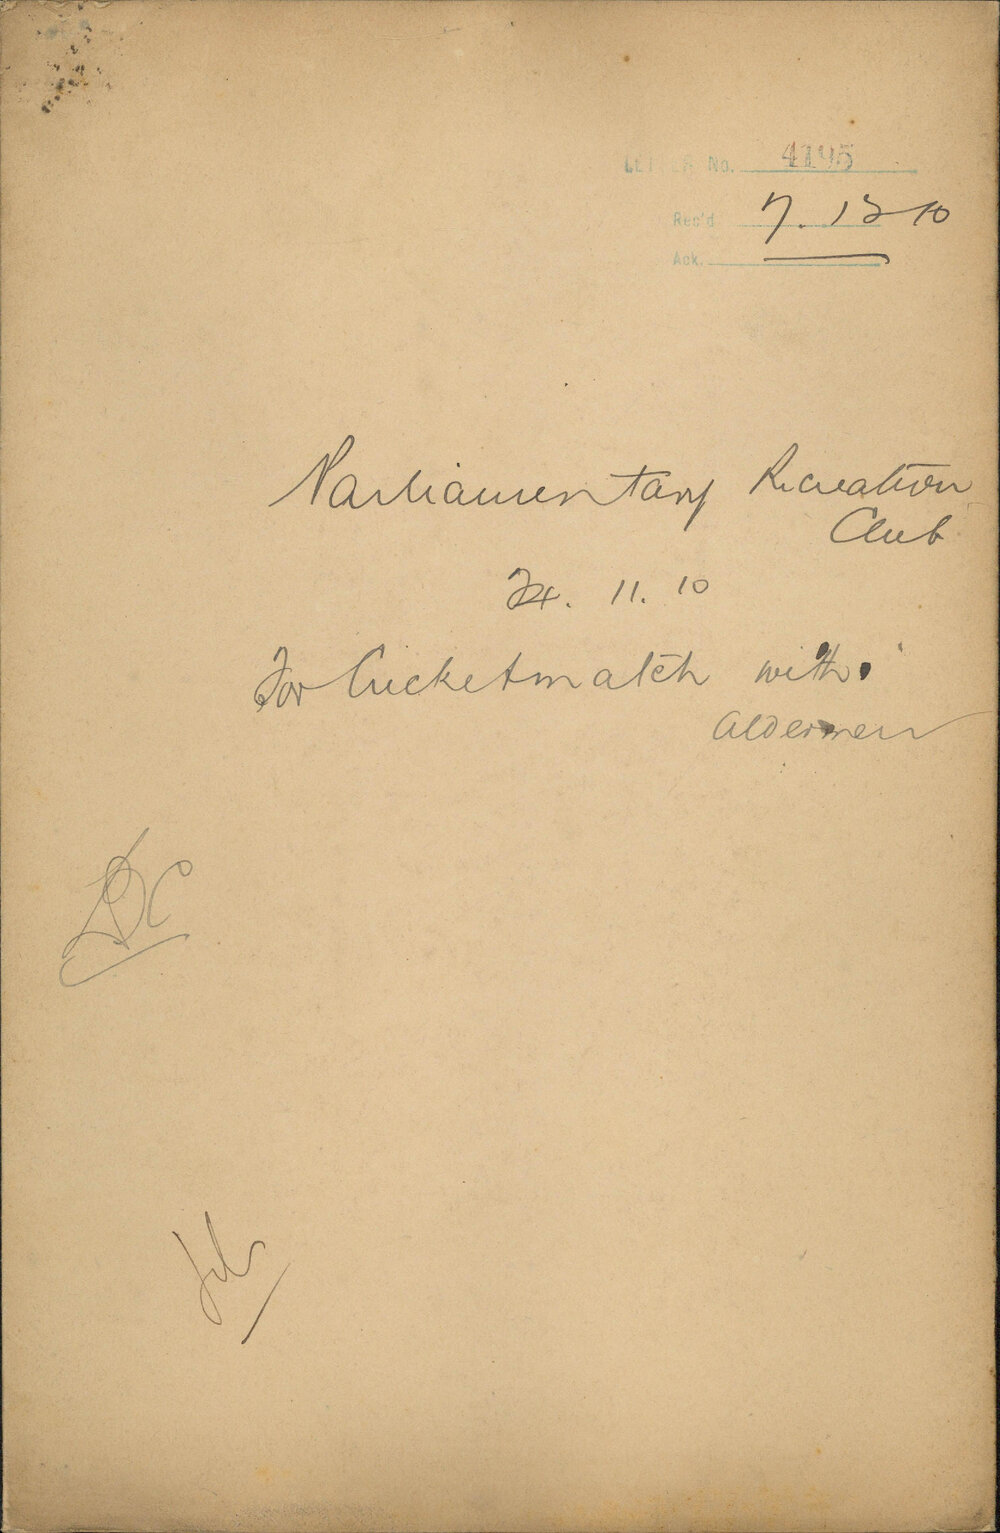 LETTER No. 4195
Rec'd 7. 12 10
Ack.
Parliamentary Recreation
Club
24. 11. 10
For Cricket match with
Aldermen